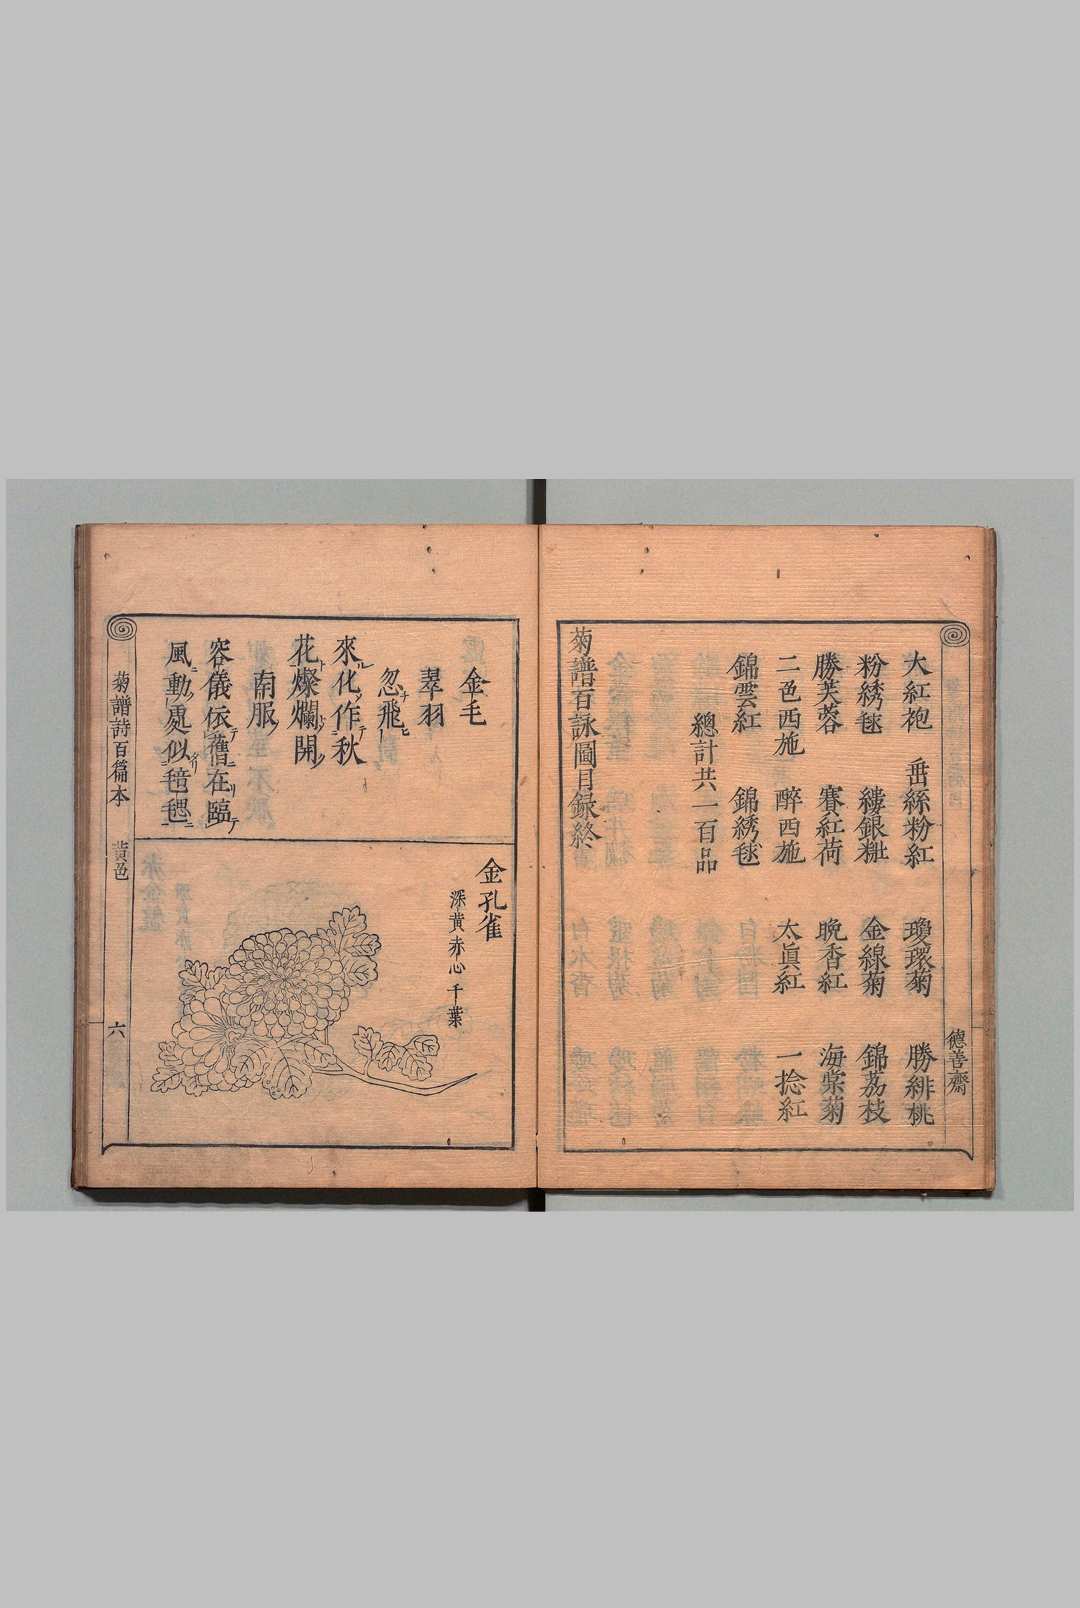 大紅袍 垂絲粉紅 瓊環菊 勝緋桃
粉綉毬 縷銀粧 金線菊 錦荔枝
勝芙蓉 賽紅荷 晩香紅 海棠菊
二色西施 醉西施 太眞紅 一捻紅
錦雲紅 錦綉毬
總計共一百品
菊譜百詠圖目録終
德善齋
金孔雀
深黄赤心千葉
金毛
翠羽
忽飛
來化作秋
花燦爛開
南服
容儀依舊在臨
風動處似毰毸
菊譜詩百篇本 黄色 六